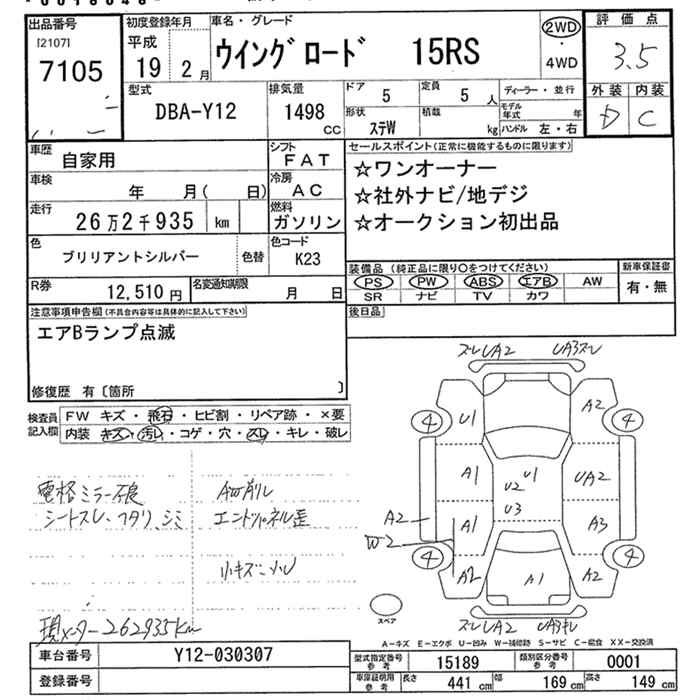 出品番号
[2107]
7105
初度登録年月
平成
19年 2月
車名・グレード
ウイングロード 15RS
2WD
・
4WD
評価点
3.5
外装 内装
D C
型式
DBA-Y12
排気量
1498
CC
ドア 5
定員 5人
形状 ステW
積載 kg
ディーラー・並行
モデル年式 年
ハンドル 左・右
車歴 自家用
シフト FAT
車検 年 月( 日)
冷房 AC
走行 26万2千935 km
燃料 ガソリン
色 ブリリアントシルバー 色替
色コード K23
R券 12,510円
名変通知期限 月 日
セールスポイント(正常に機能するものに限ります)
☆ワンオーナー
☆社外ナビ/地デジ
☆オークション初出品
装備品(純正品に限り○をつけてください)
PS PW ABS エアB AW
SR ナビ TV カワ
新車保証書
有・無
後日品
注意事項申告欄(不具合内容等は具体的に記入して下さい)
エアBランプ点滅
修復歴 有〔箇所 〕
検査員記入欄
FW キズ・飛石・ヒビ割・リペア跡・×要
内装 キズ・汚レ・コゲ・穴・スレ・キレ・破レ
電格ミラー不良
シートスレ、フタリ、シミ
エンドパネル歪
小キズ、小U
現メーター262935km
ズレUA2 UA3ズレ
4 U1 A2 4
A1 U2 U1 UA2
A2 A1 U3 A3
W-2
4 A2 A1 A2 4
スペア
ズレUA2
A-キズ E-エクボ U-凹み W-補修跡 S-サビ C-腐食 XX-交換済
車台番号 Y12-030307
登録番号
型式指定番号参考 15189
類別区分番号参考 0001
車庫証明用参考 長さ 441 cm 幅 169 cm 高さ 149 cm